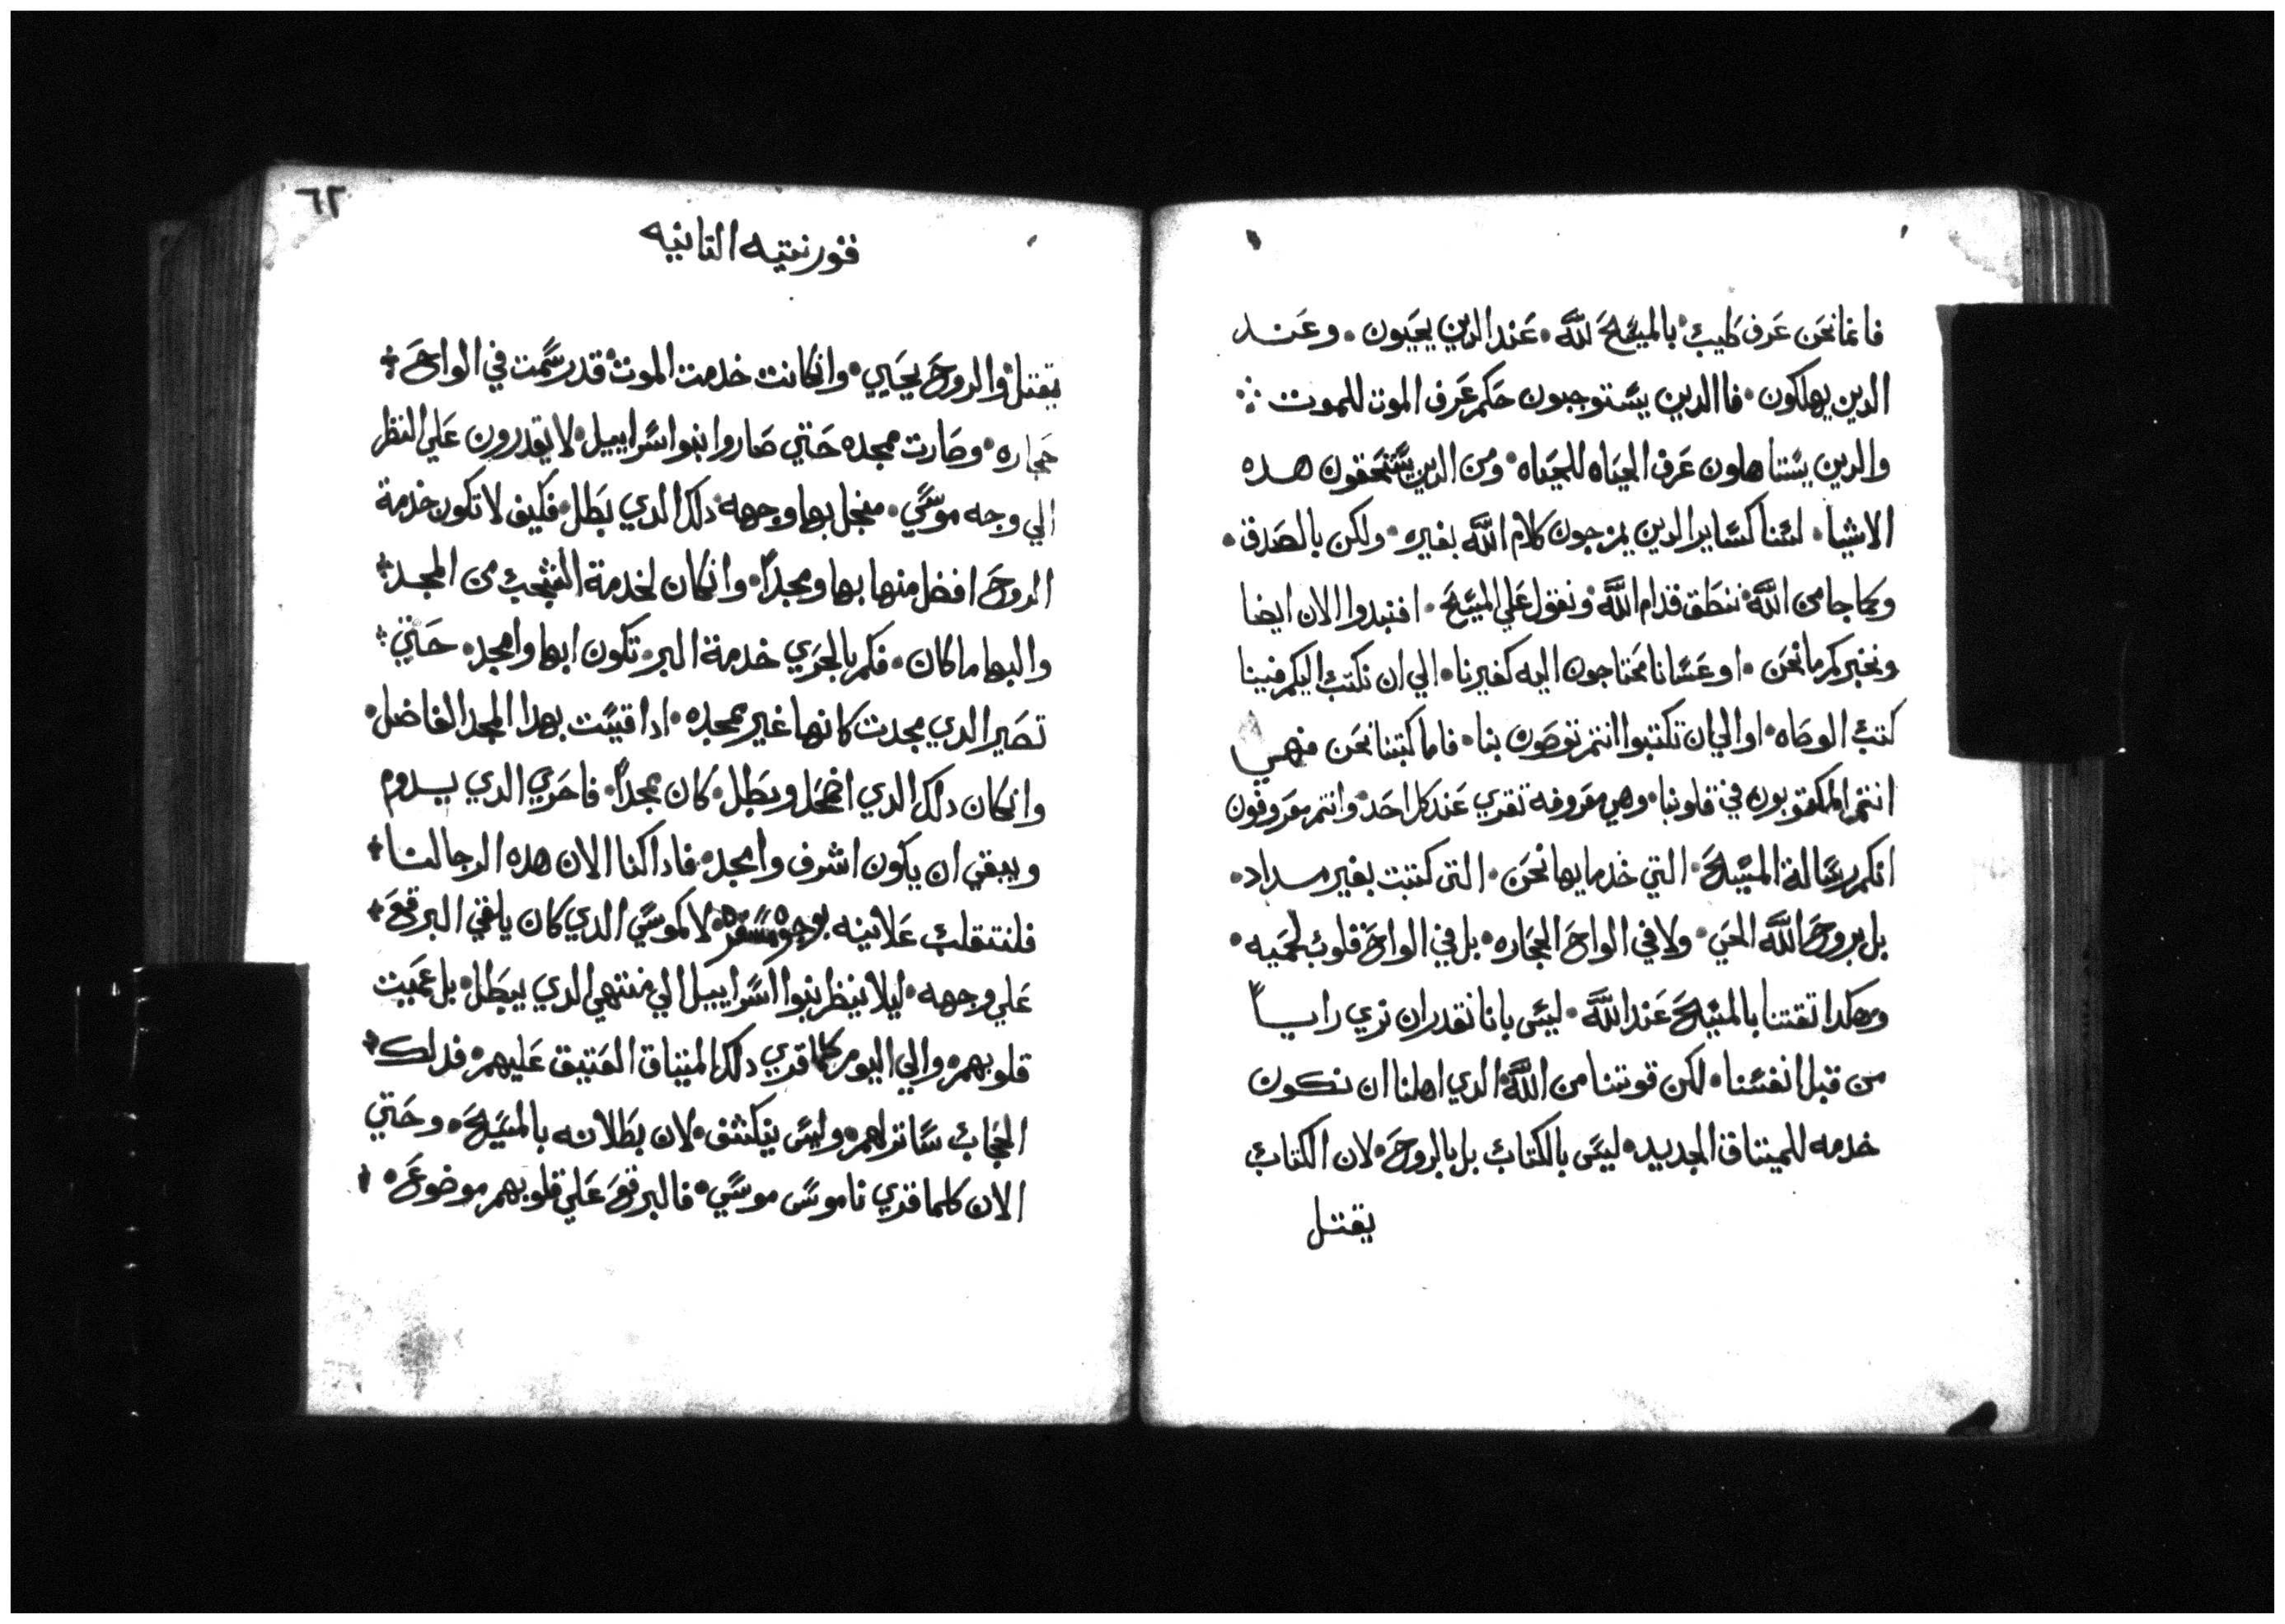 فانما نحن عرف طيب بالمسيح لله. عند الدين يحيون. وعند
الدين يهلكون. فاالدين يستوجبون حكم عرف الموت للموت
والدين يستاهلون عرف الحياه للحياه. ومن الدين يستحقون هده
الاشيا. لسنا كساير الدين يمزجون كلام الله بغيره. ولكن بالصدق.
وكما جا من الله. ننطق قدام الله ونقول علي المسيح. افنبدوا الان ايضا
ونخبركم ما نحن. او عسانا محتاجون اليه كغيرنا. الي ان نكتب اليكم فينا
كتب الوصاه. او الي ان تكتبوا انتم توصون بنا. فاما كتبنا نحن فهي
انتم المكتوبون في قلوبنا. وهي معروفه تقري عند كل احد. وانتم معروفون
انكم رسالة المسيح. التي خدمايها نحن. التي كتبت بغير مداد.
بل بروح الله الحي. ولا في الواح الحجاره. بل في الواح قلوب لحميه.
وهكدا تقتنا بالمسيح عند الله. ليس بانا نقدر ان نري راياً
من قبل انفسنا. لكن قوتنا من الله. الدي اهلنا ان نكون
خدمه للميتاق الجديد. ليس بالكتاب بل بالروح. لان الكتاب
يقتل
٦٢
قورنتيه التانيه
يقتل والروح يحيي. وانكانت خدمت الموت. قد رسمت في الواح
حجاره. وصارت ممجده حتي صاروا بنوا اسراييل. لا يقدرون علي النظر
الي وجه موسي. منجل بها وجهه. دلك الدي بطل. فكيف لا تكون خدمة
الروح افضل منها بها ومجداً. وانكان لخدمة الشجب من المجد
والبها ما كان. فكم بالحري خدمة البر. تكون ابها وامجد. حتي
تصير الدي مجدت كانها غير ممجده. ادا قيست بهدا المجد الفاضل.
وانكان دلك الدي اضمحل وبطل. كان ممجداً. فاحري الدي يدوم
ويبقي ان يكون اشرف وامجد. فاداكنا الان هده الرجا لنا
فلنتقلب علانيه بوجوه مسفره. لا كموسي الدي كان يلقي البرقع
علي وجهه. ليلا ينظر بنوا اسراييل الي منتهي الدي يبطل. بل عميت
قلوبهم. والي اليوم كلما قري دلك الميتاق العتيق عليهم. فدلك
الحجاب ساتر لهم. وليس ينكشف. لان بطلانه بالمسيح. وحتي
الان كلما قري ناموس موسي. فالبرقع علي قلوبهم موضوع.